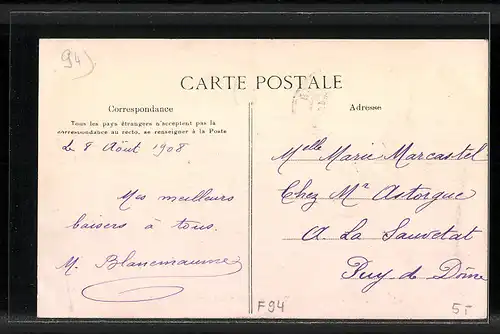 94
CARTE POSTALE
Correspondance
Tous les pays étrangers n'acceptent pas la
correspondance au recto, se renseigner à la Poste
Le 8 Août 1908
Mes meilleurs
baisers à tous.
M. Blancmaume
Adresse
Melle Marie Marcastel
Chez Mr Astorgue
A La Sauvetat
Puy de Dôme
F94
5-